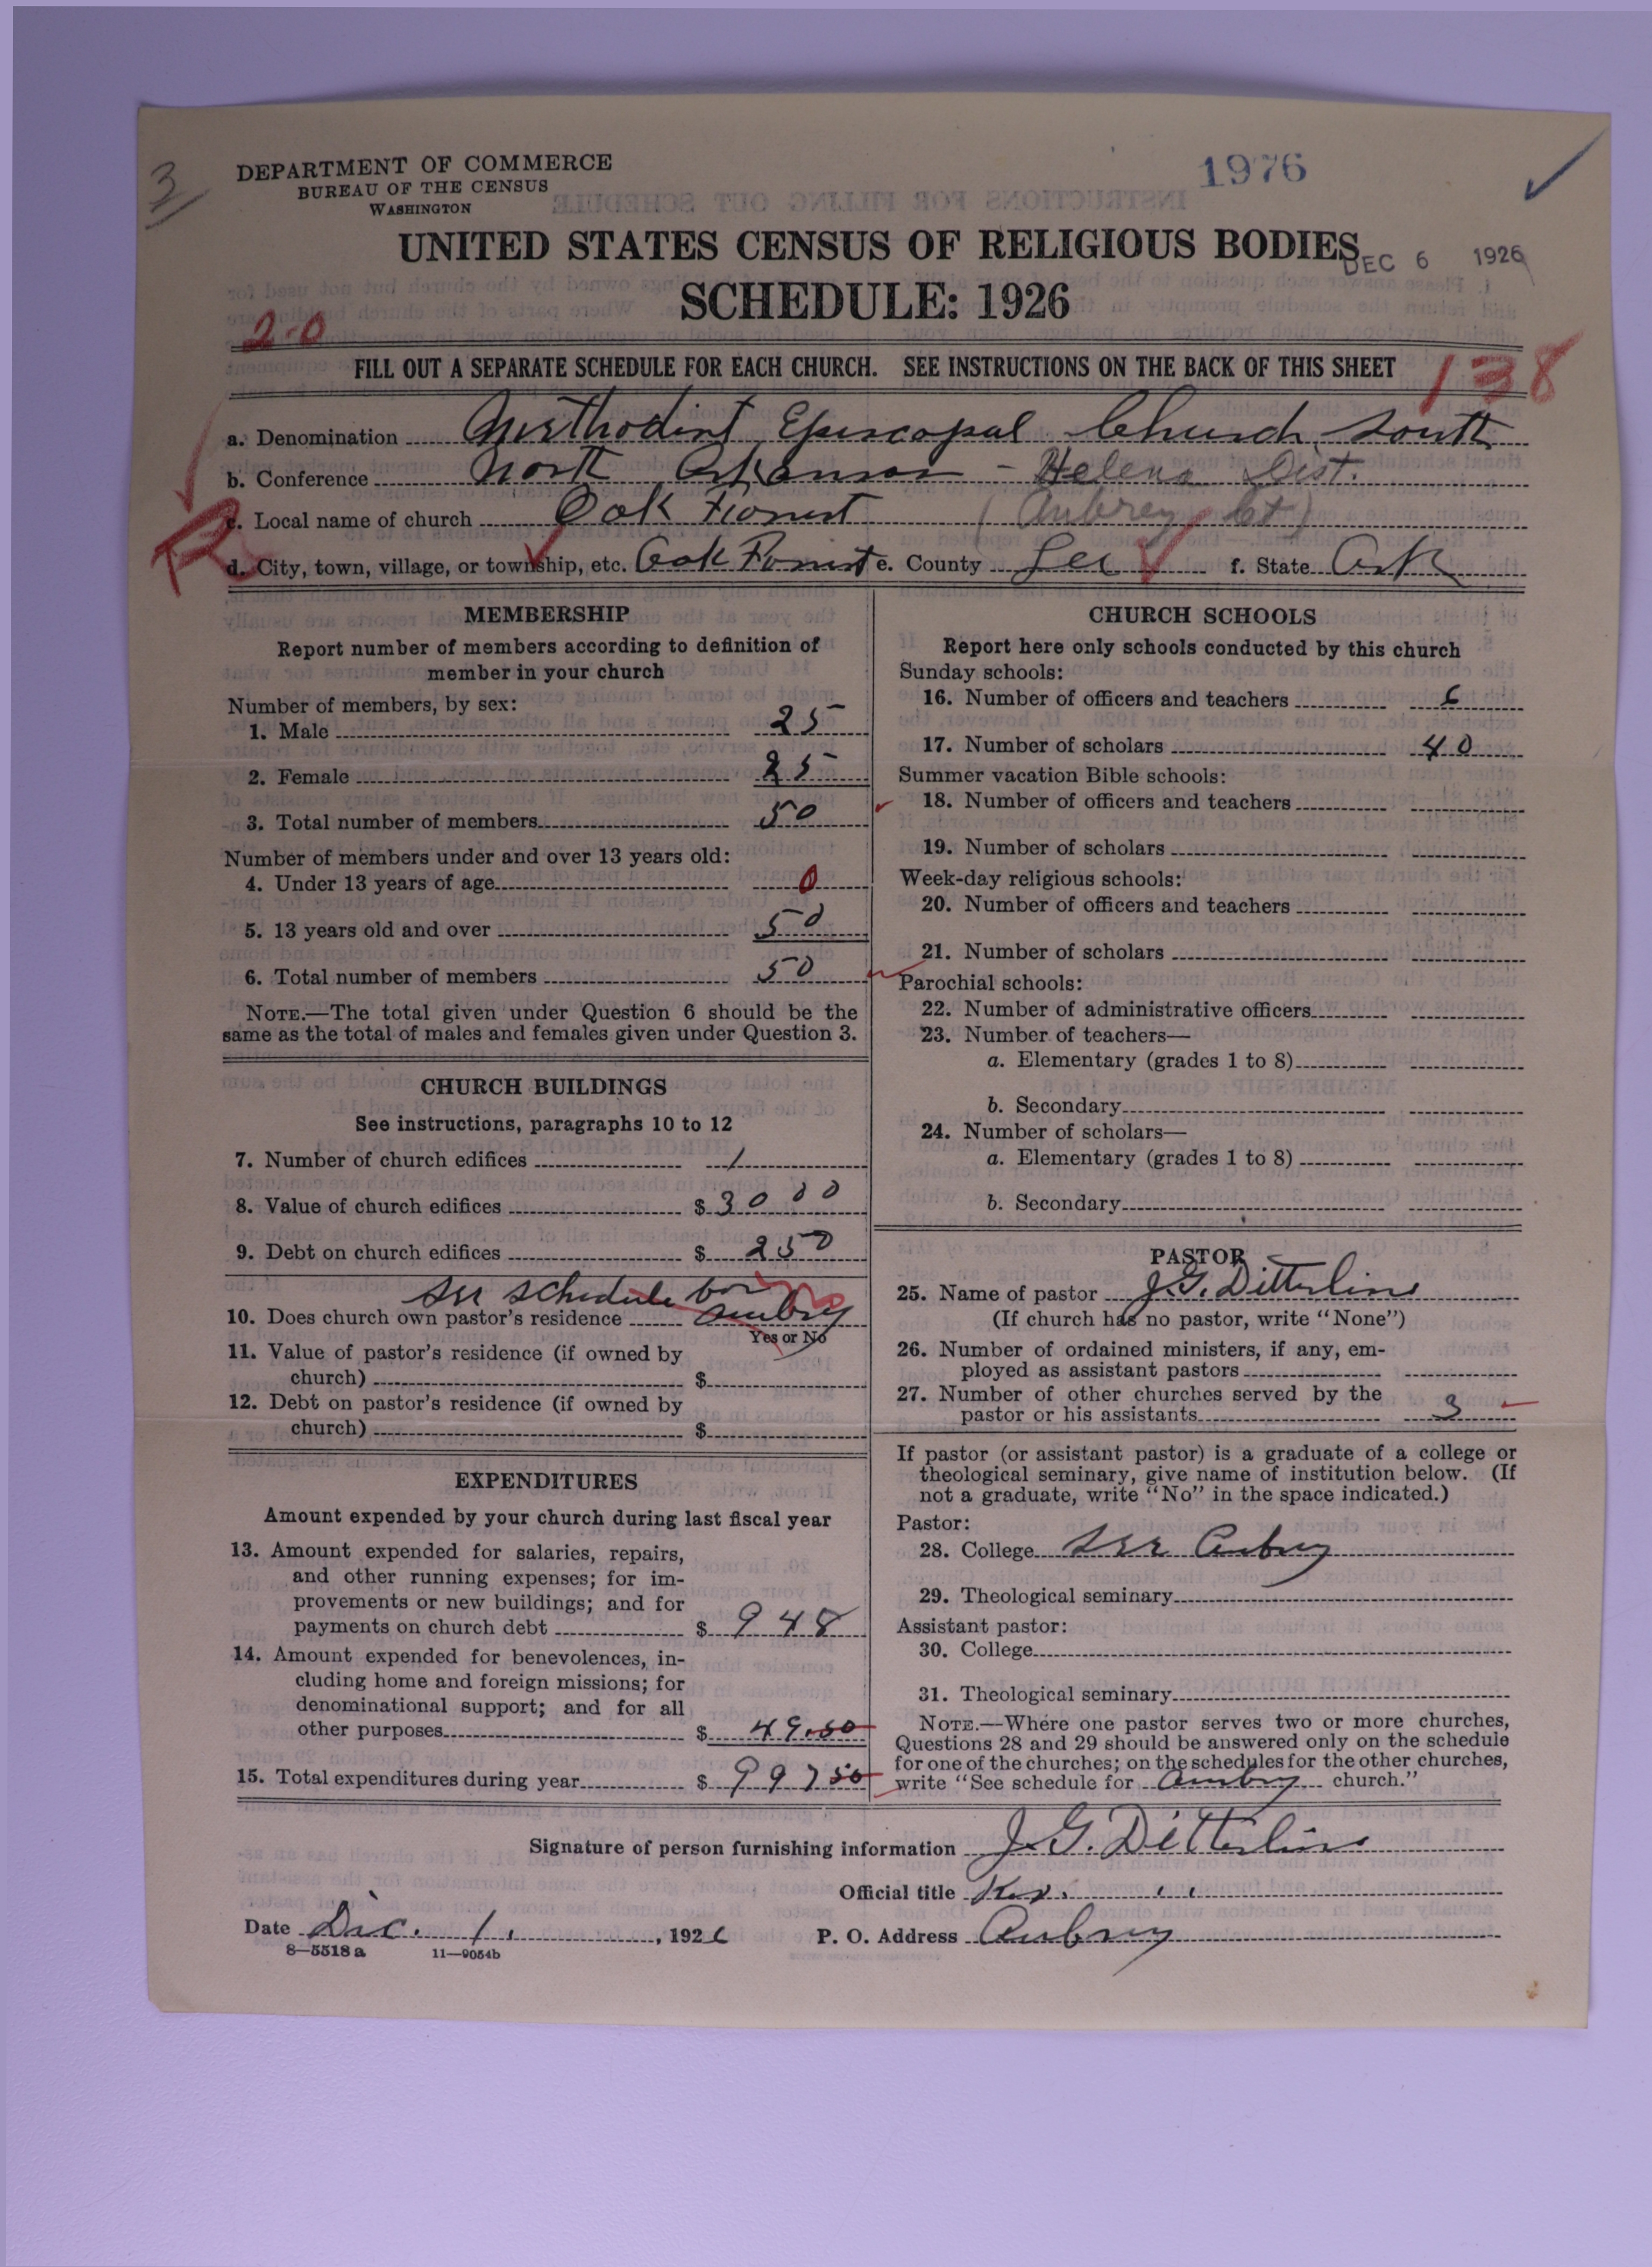 3
DEPARTMENT OF COMMERCE
BUREAU OF THE CENSUS
WASHINGTON
1976
UNITED STATES CENSUS OF RELIGIOUS BODIES
DEC 6 1926
SCHEDULE: 1926
2-0
FILL OUT A SEPARATE SCHEDULE FOR EACH CHURCH. SEE INSTRUCTIONS ON THE BACK OF THIS SHEET
138
a. Denomination Methodist Episcopal Church, South
b. Conference North Arkansas - Helena Dist.
c. Local name of church Oak Forrest (Aubrey Ct)
R
d. City, town, village, or township, etc. Oak Forrest e. County Lee f. State Ark
MEMBERSHIP
Report number of members according to definition of
member in your church
Number of members, by sex:
1. Male 25
2. Female 25
3. Total number of members 50
Number of members under and over 13 years old:
4. Under 13 years of age 0
5. 13 years old and over 50
6. Total number of members 50
NOTE.—The total given under Question 6 should be the
same as the total of males and females given under Question 3.
CHURCH BUILDINGS
See instructions, paragraphs 10 to 12
7. Number of church edifices 1
8. Value of church edifices $ 3000
9. Debt on church edifices $ 250
See schedule for
10. Does church own pastor's residence Aubry
Yes or No
11. Value of pastor's residence (if owned by
church) $
12. Debt on pastor's residence (if owned by
church) $
EXPENDITURES
Amount expended by your church during last fiscal year
13. Amount expended for salaries, repairs,
and other running expenses; for im-
provements or new buildings; and for
payments on church debt $ 948
14. Amount expended for benevolences, in-
cluding home and foreign missions; for
denominational support; and for all
other purposes $ 49.50
15. Total expenditures during year $ 997 50
CHURCH SCHOOLS
Report here only schools conducted by this church
Sunday schools:
16. Number of officers and teachers 6
17. Number of scholars 40
Summer vacation Bible schools:
18. Number of officers and teachers
19. Number of scholars
Week-day religious schools:
20. Number of officers and teachers
21. Number of scholars
Parochial schools:
22. Number of administrative officers
23. Number of teachers—
a. Elementary (grades 1 to 8)
b. Secondary
24. Number of scholars—
a. Elementary (grades 1 to 8)
b. Secondary
PASTOR
25. Name of pastor J. G. Ditterline
(If church has no pastor, write "None")
26. Number of ordained ministers, if any, em-
ployed as assistant pastors
27. Number of other churches served by the
pastor or his assistants 3
If pastor (or assistant pastor) is a graduate of a college or
theological seminary, give name of institution below. (If
not a graduate, write "No" in the space indicated.)
Pastor:
28. College See Aubry
29. Theological seminary
Assistant pastor:
30. College
31. Theological seminary
NOTE.—Where one pastor serves two or more churches,
Questions 28 and 29 should be answered only on the schedule
for one of the churches; on the schedules for the other churches,
write "See schedule for Aubry church."
Signature of person furnishing information J. G. Ditterline
Official title
Date Dec. 1. , 1926 P. O. Address Aubrey
8—5518 a 11—9054b